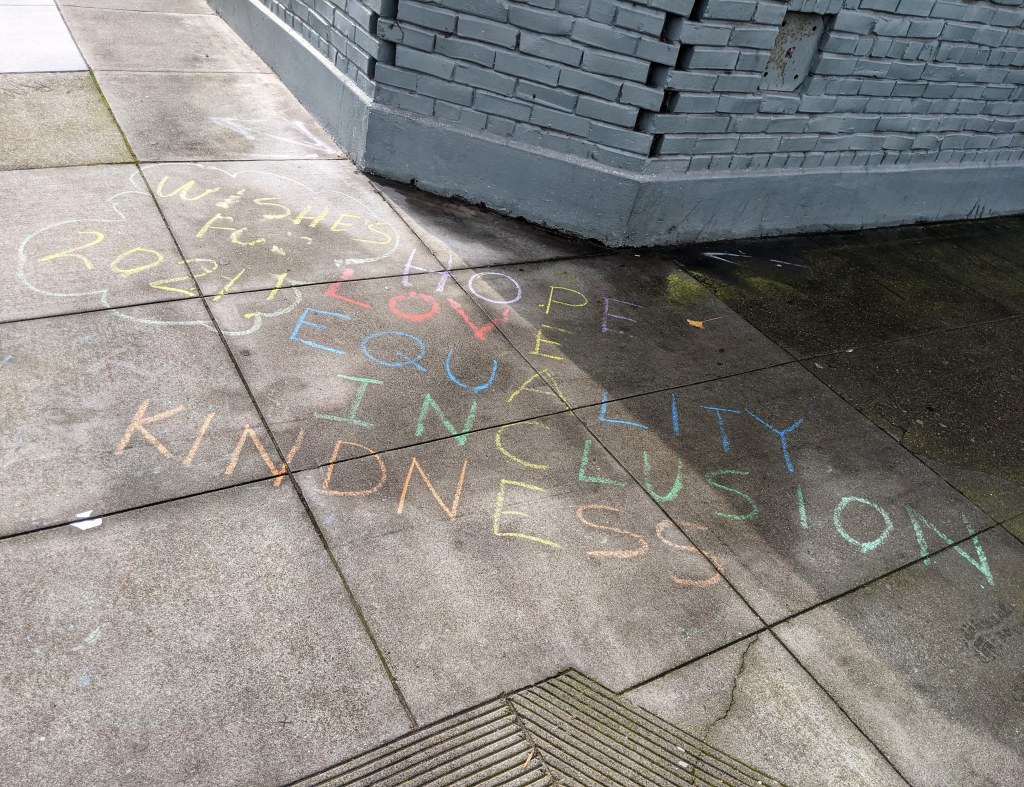 WiSHES
FOR
2021!!
HOPE
LOVE
EQUALITY
INCLUSION
KINDNESS
PEACE